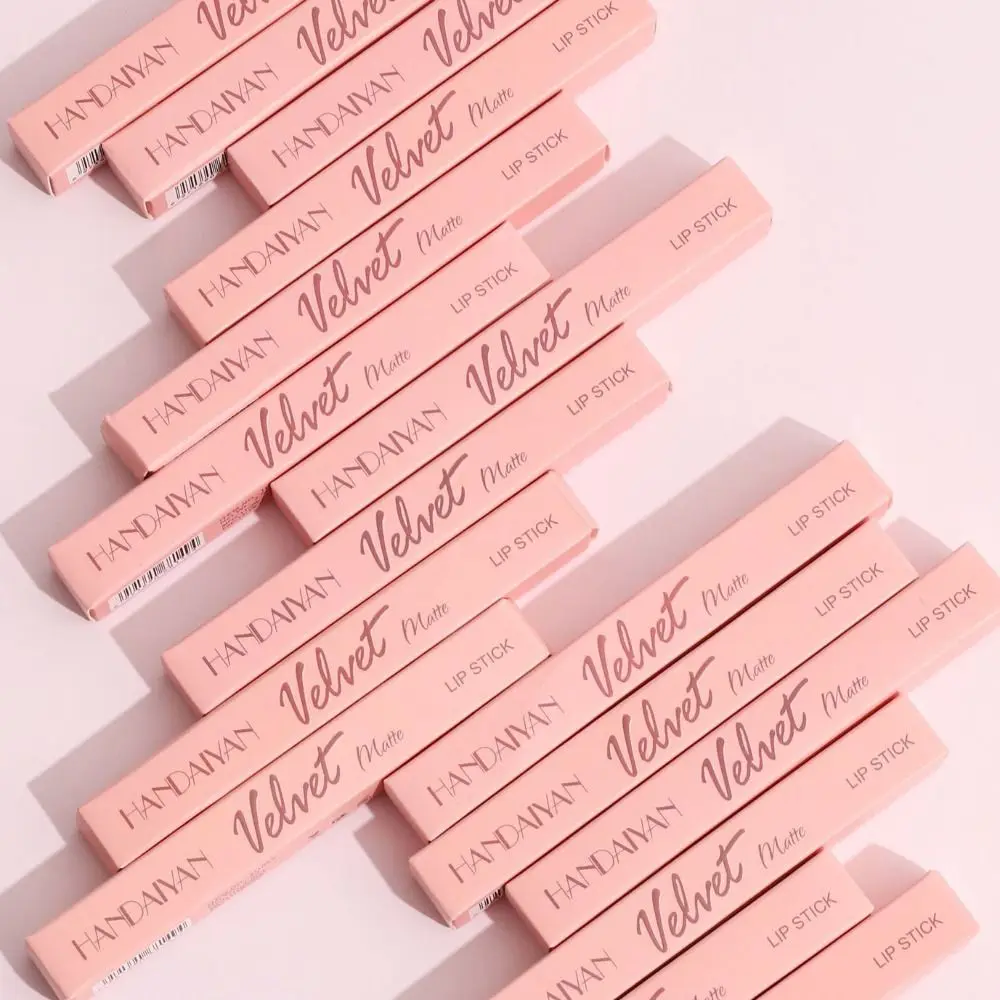 HANDAIYAN
HANDAIYAN Velvet
HANDAIYAN Velvet
HANDAIYAN Velvet Matte LIP STICK
HANDAIYAN Velvet Matte LIP STICK
HANDAIYAN Velvet Matte LIP STICK
HANDAIYAN Velvet Matte LIP STICK
HANDAIYAN Velvet Matte LIP STICK
HANDAIYAN Velvet Matte LIP STICK
HANDAIYAN Velvet Matte LIP STICK
HANDAIYAN Velvet Matte LIP STICK
HANDAIYAN Velvet Matte LIP STICK
HANDAIYAN Velvet Matte LIP STICK
HANDAIYAN Velvet Matte LIP STICK
Matte LIP STICK
LIP STICK